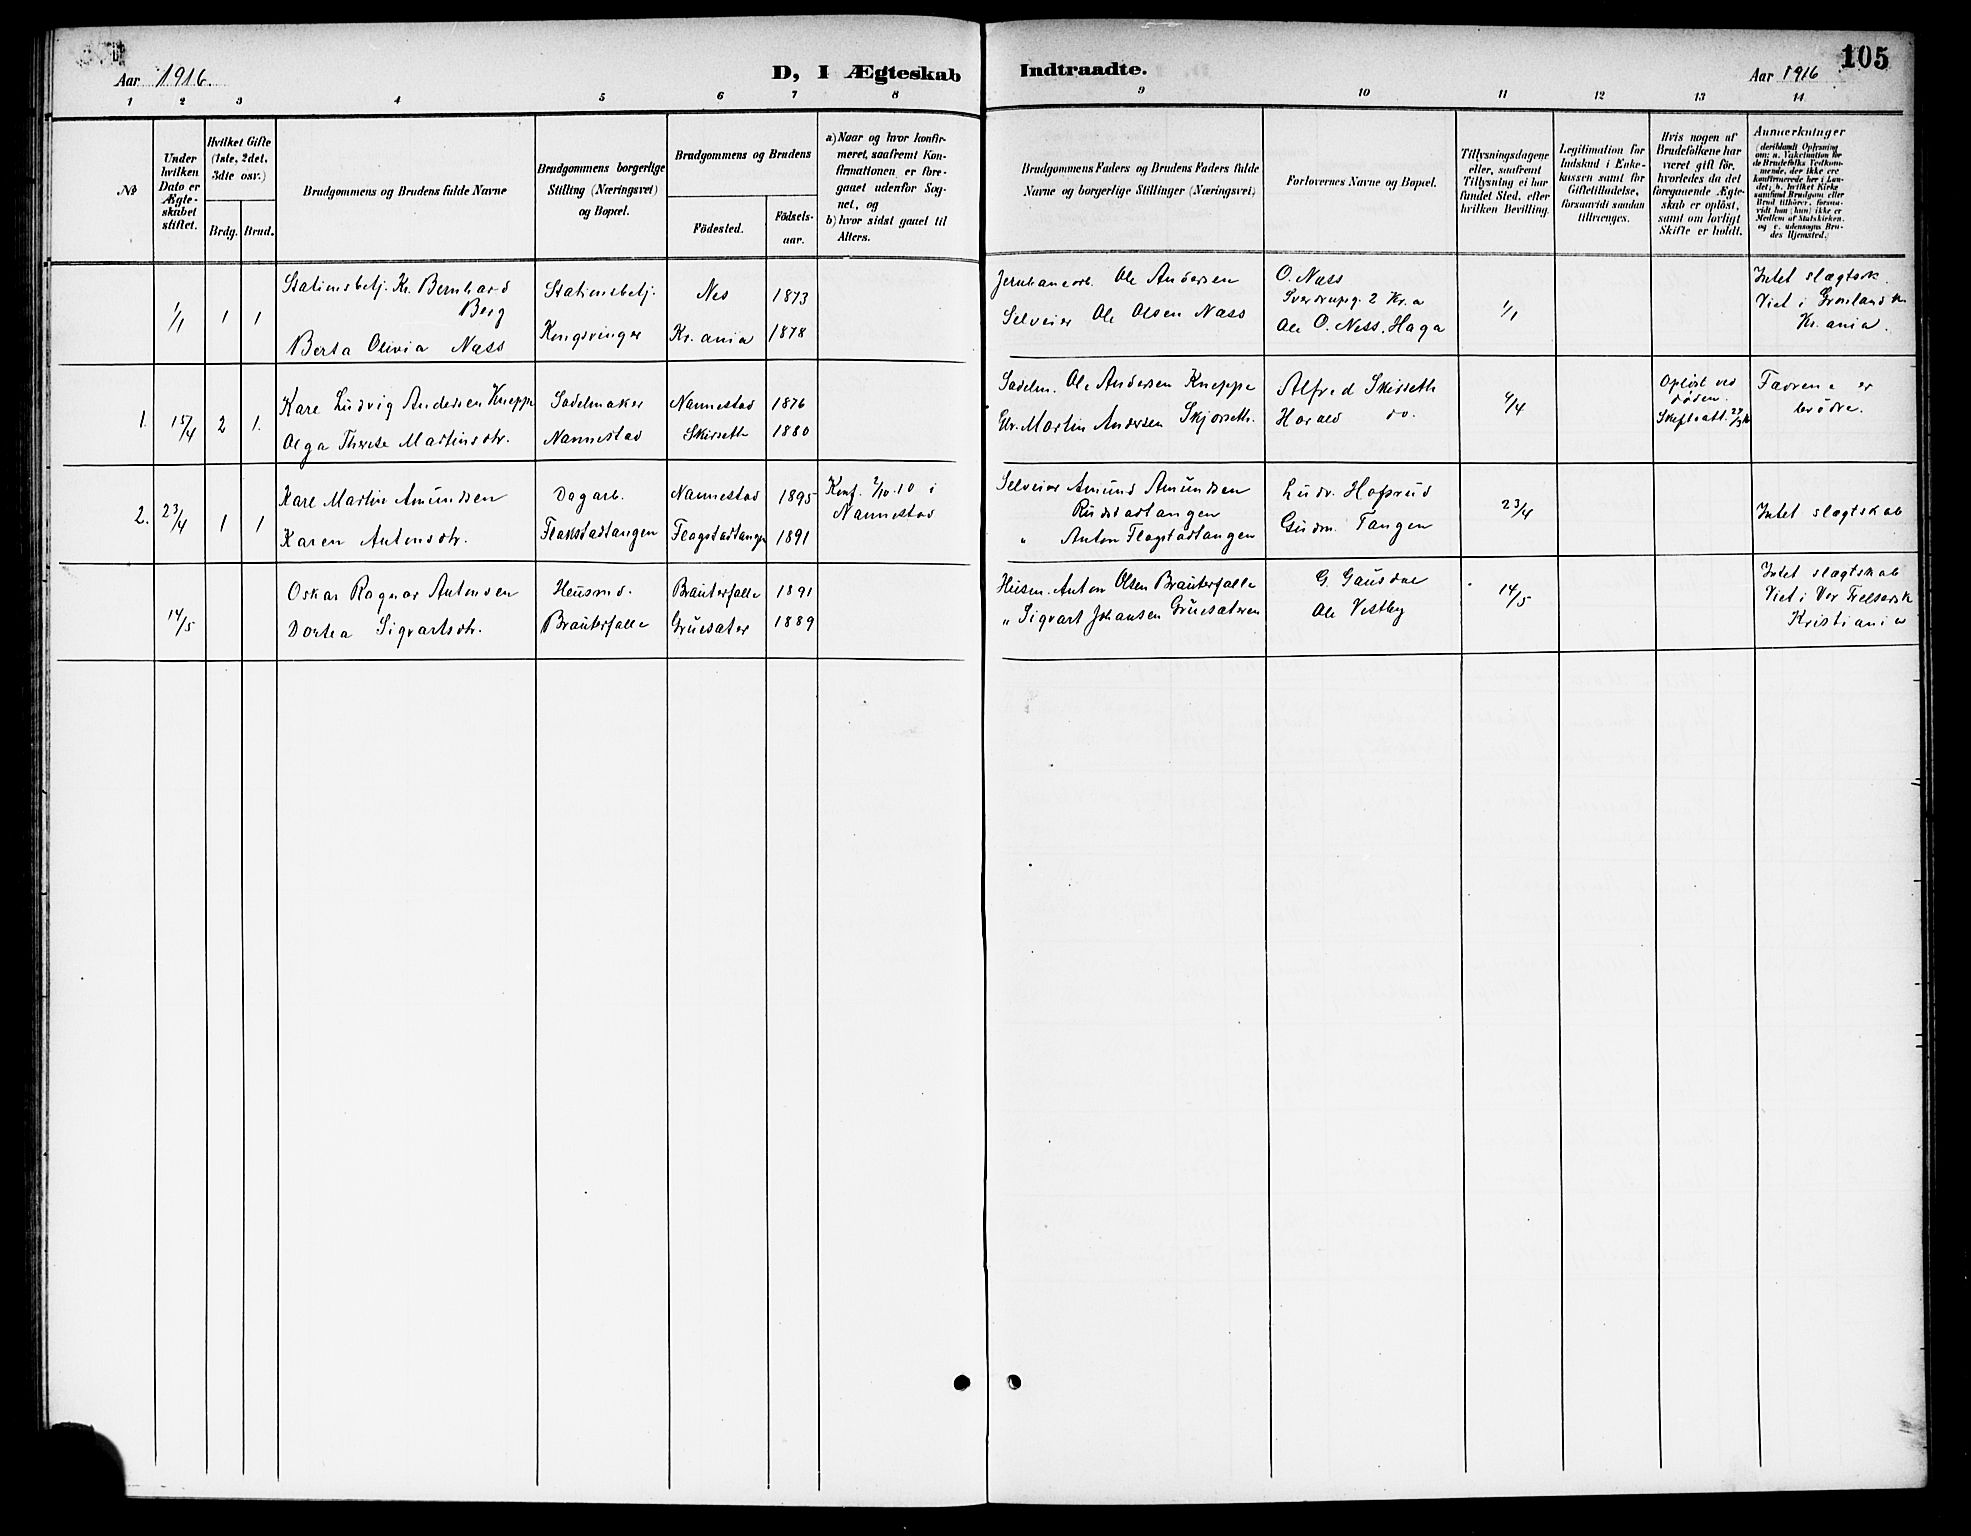 105
Aar 1916.
D, I Ægteskab Indtraadte.
Aar 1916
1 2 3 4 5 6 7 8 9 10 11 12 13 14
No
Under
hvilken
Dato er
Ægte-
skabet
stiftet.
Hvilket Gifte
(1ste, 2det,
3die osv.)
Brdg. Brud.
Brudgommens og Brudens fulde Navne
Brudgommens borgerlige
Stilling (Næringsvei)
og Bopæl.
Brudgommens og Brudens
Födested.
Födsels-
aar.
a) Naar og hvor konfir-
meret, saafremt Kon-
firmationen er fore-
gaaet udenfor Sog-
net, og
b) hvor sidst gaaet til
Alters.
Brudgommens Faders og Brudens Faders fulde
Navne og borgerlige Stillinger (Næringsvei)
Forlovernes Navne og Bopæl.
Tillysningsdagene
eller, saafremt
Tillysning ei har
fundet Sted, efter
hvilken Bevilling.
Legitimation for
Indskud i Enke-
kassen samt for
Giftetilladelse,
forsaavidt saadan
tiltrænges.
Hvis nogen af
Brudefolkene har
været gift för,
hvorledes da det
foregaaende Ægte-
skab er oplöst,
samt om lovligt
Skifte er holdt.
Anmærkninger
(deriblandt Oplysning
om: a. Vakcination for
de Brudefolks Vedkom-
mende, der ikke ere
konfirmerede her i Lan-
det; b. hvilket Kirke
samfund Brudgom eller
Brud tilhörer, forsaa-
vidt han (hun) ikke er
Medlem af Statskirken,
og c. udensogns Bru-
des Hjemsted.)
1/1 1 1
Stationsbetj. Kr. Bernhard
Berg
Berta Olivia Næss
Stationsbetj.
Kongsvinger
Nes 1873
Kr.ania 1878
Jernbanearb. Ole Andersen
Selveier Ole Olsen Næss
O. Næss
Sverdrupsg. 2 Kr.a
Ole O. Ness. Haga
1/1
Intet slægtsk.
Viet i Grønlands k
Kr.ania.
1. 15/4 2 1.
Karl Ludvig Andersen Kneppe
Olga Therese Martinsdtr.
Sadelmaker
Nannestad
Nannestad 1876
Skirseth 1880
Sadelm. Ole Andersen Kneppe
Martin Andersen Skjørseth.
Alfred Skirseth
Harald do.
9/4
Opløst ved
døden.
Skifteatt.
Fædrene er
brødre.
2. 23/4 1 1
Karl Martin Amundsen
Karen Antonsdtr.
Dagarb.
Flakstadtangen
Nannestad 1895
Flagstadtangen 1891
Konf. 2/10.10 i
Nannestad
Selveier Amund Amundsen
Rudstadtangen
" Anton Flagstadtangen
Ludv. Hofsrud
Gudm. Tangen
23/4
Intet slægtskab
14/5
Oskar Ragnar Antonsen
Dortea Sigvartsdtr.
Husmd.
Brauterfalle
Brauterfalle 1891
Gruesæter 1889
Husm. Anton Olsen Brauterfalle
" Sigvart Johansen Gruesæteren
G. Gausdal
Ole Vestby
14/5
Intet slægtskab
Viet i Vor Frelsersk
Kristiania